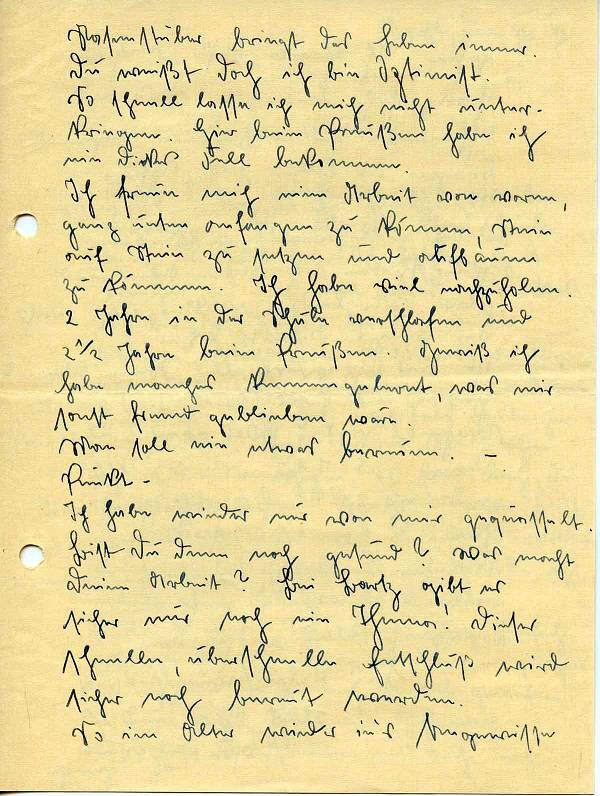 Nasenstüber bringt das Leben immer.
Du weißt doch ich bin Optimist.
So schnell lasse ich mich nicht unter-
kriegen. Hier beim Preußen habe ich
ein dickes Fell bekommen.
Ich freue mich eine Arbeit von vorne,
ganz unten anfangen zu können, Stein
auf Stein zu setzen und aufbauen
zu können. Ich habe viel nachzuholen.
2 Jahre in der Schule verschlafen und
2 1/2 Jahre beim Preußen. Gewiß ich
habe manches kennengelernt, was mir
sonst fremd geblieben wäre.
Man soll nie etwas bereuen. –
Punkt –
Ich habe wieder nur von mir gequasselt.
Bist Du denn noch gesund? Was macht
Deine Arbeit? Bei gibt es
sicher nur noch ein Thema! Dieser
schnelle, überschnelle Entschluß wird
sicher noch bereut werden.
So im Alter wieder ins